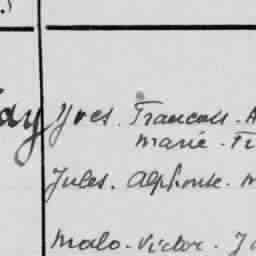 ay Yves. Francois. A
Marie. Fr
Jules. Alphonse. M
Malo. Victor. J